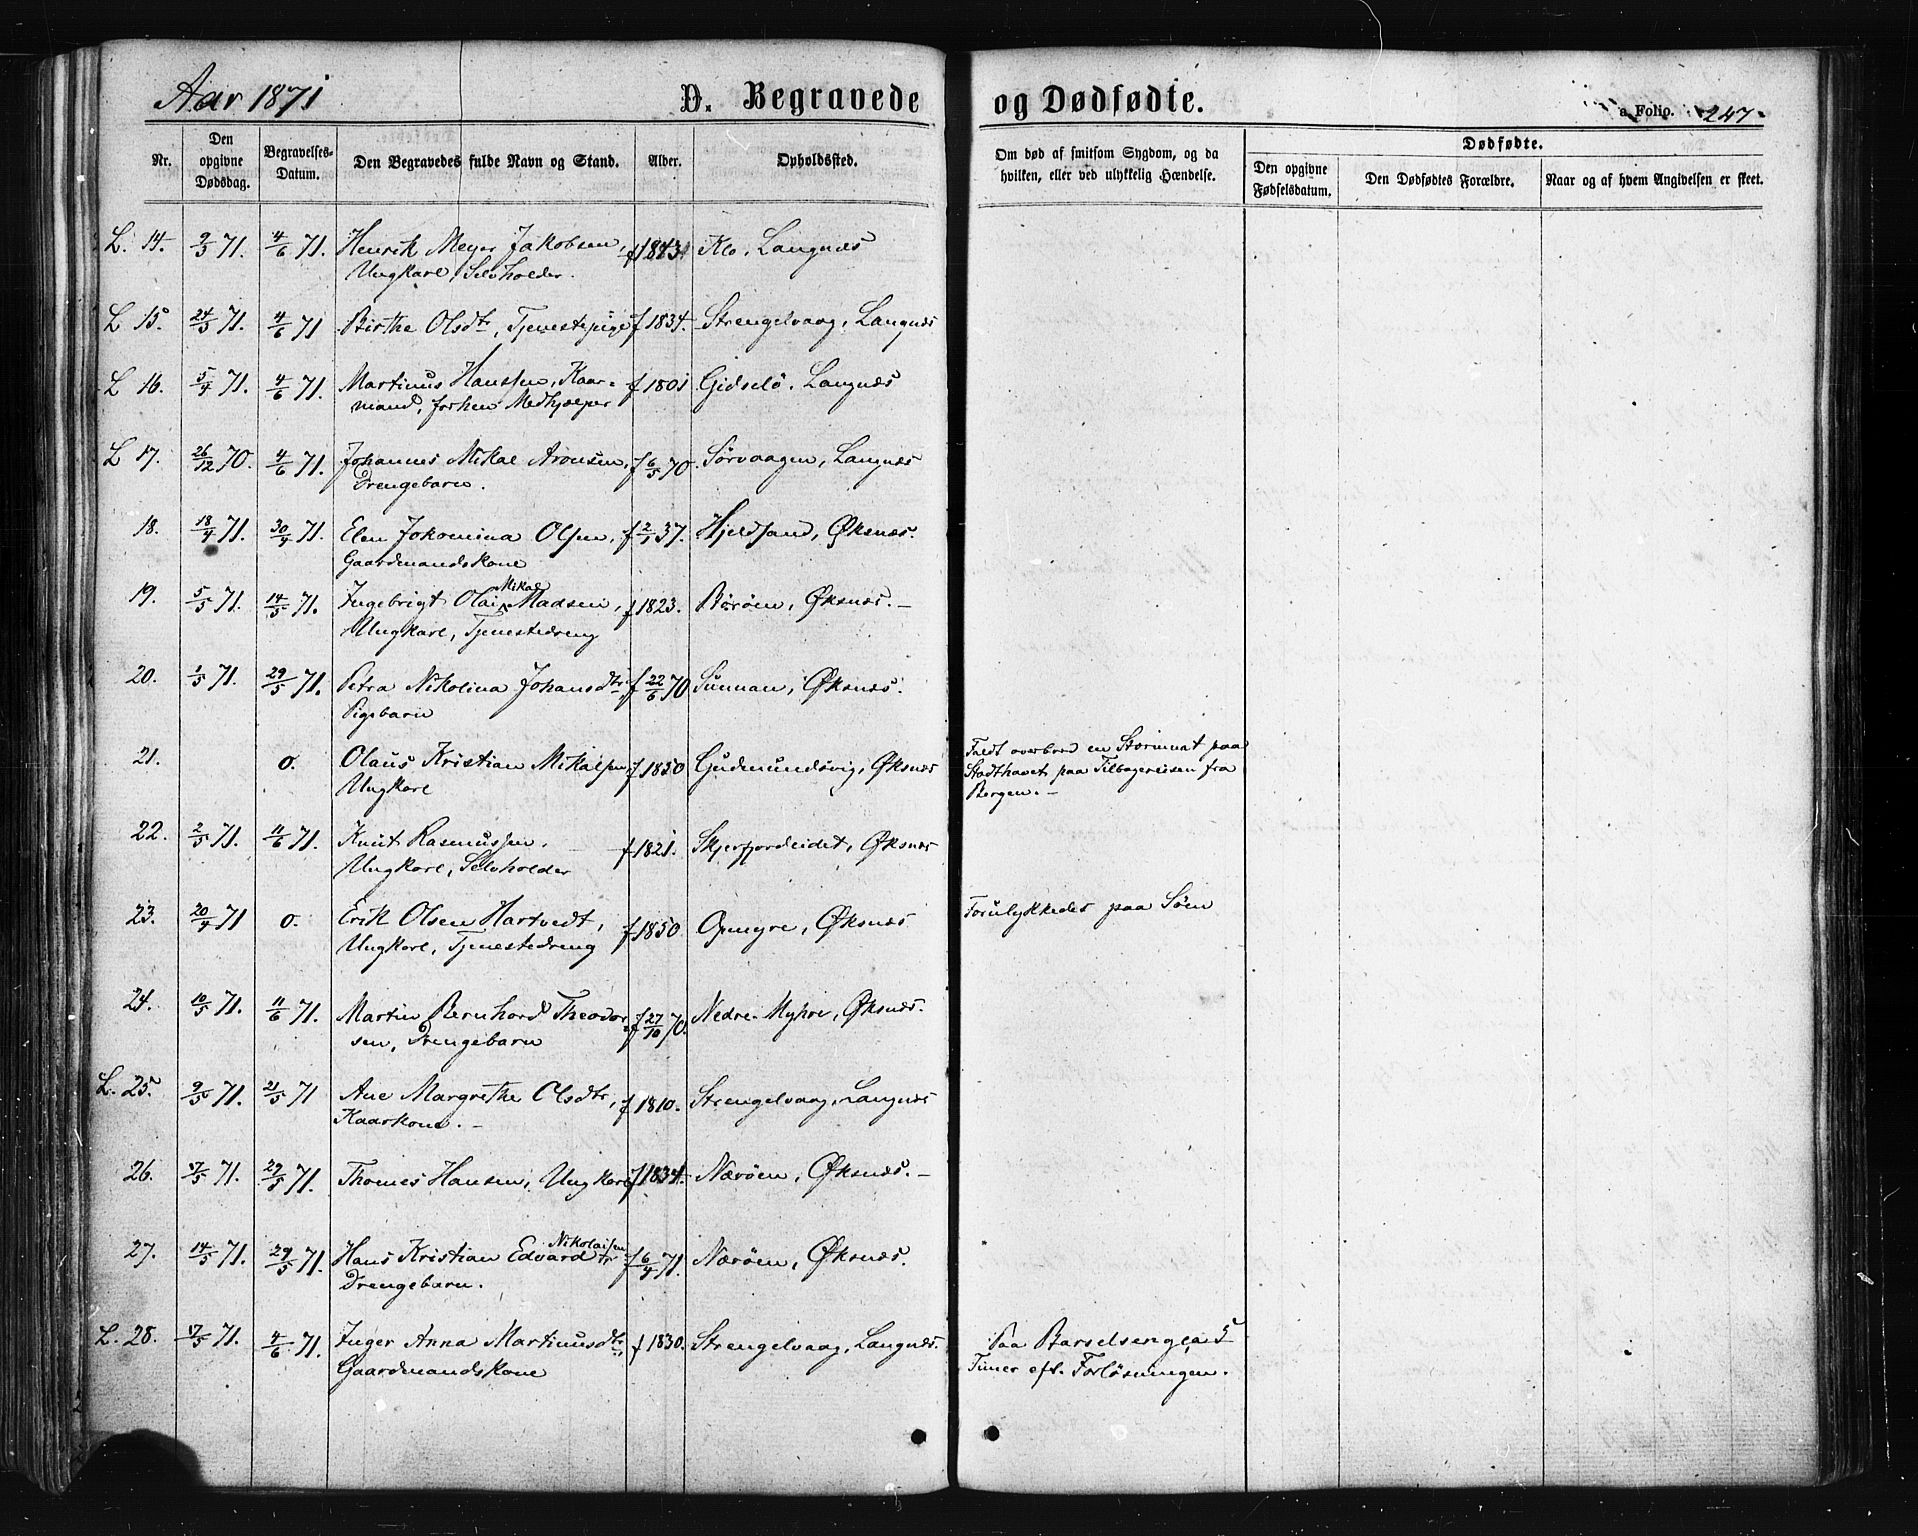 Aar 1871
D. Begravede og Dødfødte.
a. Folio. 247.
Nr. Den opgivne Dødsdag. Begravelses-Datum. Den Begravedes fulde Navn og Stand. Alder. Opholdssted. Om død af smitsom Sygdom, og da hvilken, eller ved ulykkelig Hændelse. Dødfødte.
Den opgivne Fødselsdatum. Den Dødfødtes Forældre. Naar og af hvem Angivelsen er skeet.
L. 14. 9/3 71. 4/6 71. Henrik Meyer Jakobsen, f 1843. Klo, Langnæs
Ungkarl, Selvholder.
L 15. 24/3 71. 4/6 71 Birthe Olsdtr, Tjenestepige f 1834. Strengelvaag, Langnæs
L 16. 5/4 71. 4/6 71. Martinus Hanssen, Kaar- f 1801 Gidselö, Langnæs
mand, forhen Medhjælper
L 17. 26/12 70. 4/6 71. Johannes Mikal Aronsen, f 6/5 70 Sørvaagen, Langnæs
Drengebarn.
18. 18/4 71. 30/4 71. Elen Jokomina Olsen, f 2/1 37. Hjeldsand, Øksnæs.
Gaardmandskone
19. 5/5 71. 14/5 71. Ingebrigt Olai Mikal Madsen, f 1823. Børøen, Øksnæs.—
Ungkarl, Tjenestedreng
20. 1/5 71. 29/5 71. Petra Nikolina Johansdtr f 22/6 70 Sunnan, Øksnæs.
Pigebarn
21. 0. Olaus Kristian Mikalsen f 1850 Gudmundsvig, Øksnæs Faldt overbord en Stormnat paa
Ungkarl Stadthavet paa Tilbagereisen fra
Bergen.—
22. 2/5 71. 11/6 71. Knut Rasmussen, f 1821. Skjerfjordeidet, Øksnæs
Ungkarl, Selvholder
23. 20/4 71 0. Erik Olsen Hartvedt, f 1850. Opmyre, Øksnæs Forulykkedes paa Søen
Ungkarl, Tjenestedreng
24. 10/5 71. 11/6 71. Martin Bernhard Theodor- f 27/10 70. Nedre-Myhre, Øksnæs.
sen, Drengebarn
L. 25. 9/5 71. 21/5 71 Ane Margrethe Olsdtr, f 1810. Strengelvaag, Langnæs
Kaarkone.—
26. 7/5 71. 29/5 71. Thomes Hansen, Ungkarl f 1834. Nærøen, Øksnæs.—
27. 14/5 71. 29/5 71. Hans Kristian Edvard Nikolaisen f 6/4 71. Nærøen, Øksnæs.
Drengebarn.
L. 28. 7/5 71. 4/6 71. Inger Anna Martinusdtr f 1830. Strengelvaag, Langnæs. Paa Barselseng, 5
Gaardmandskone Timer eft. Forløsningen.